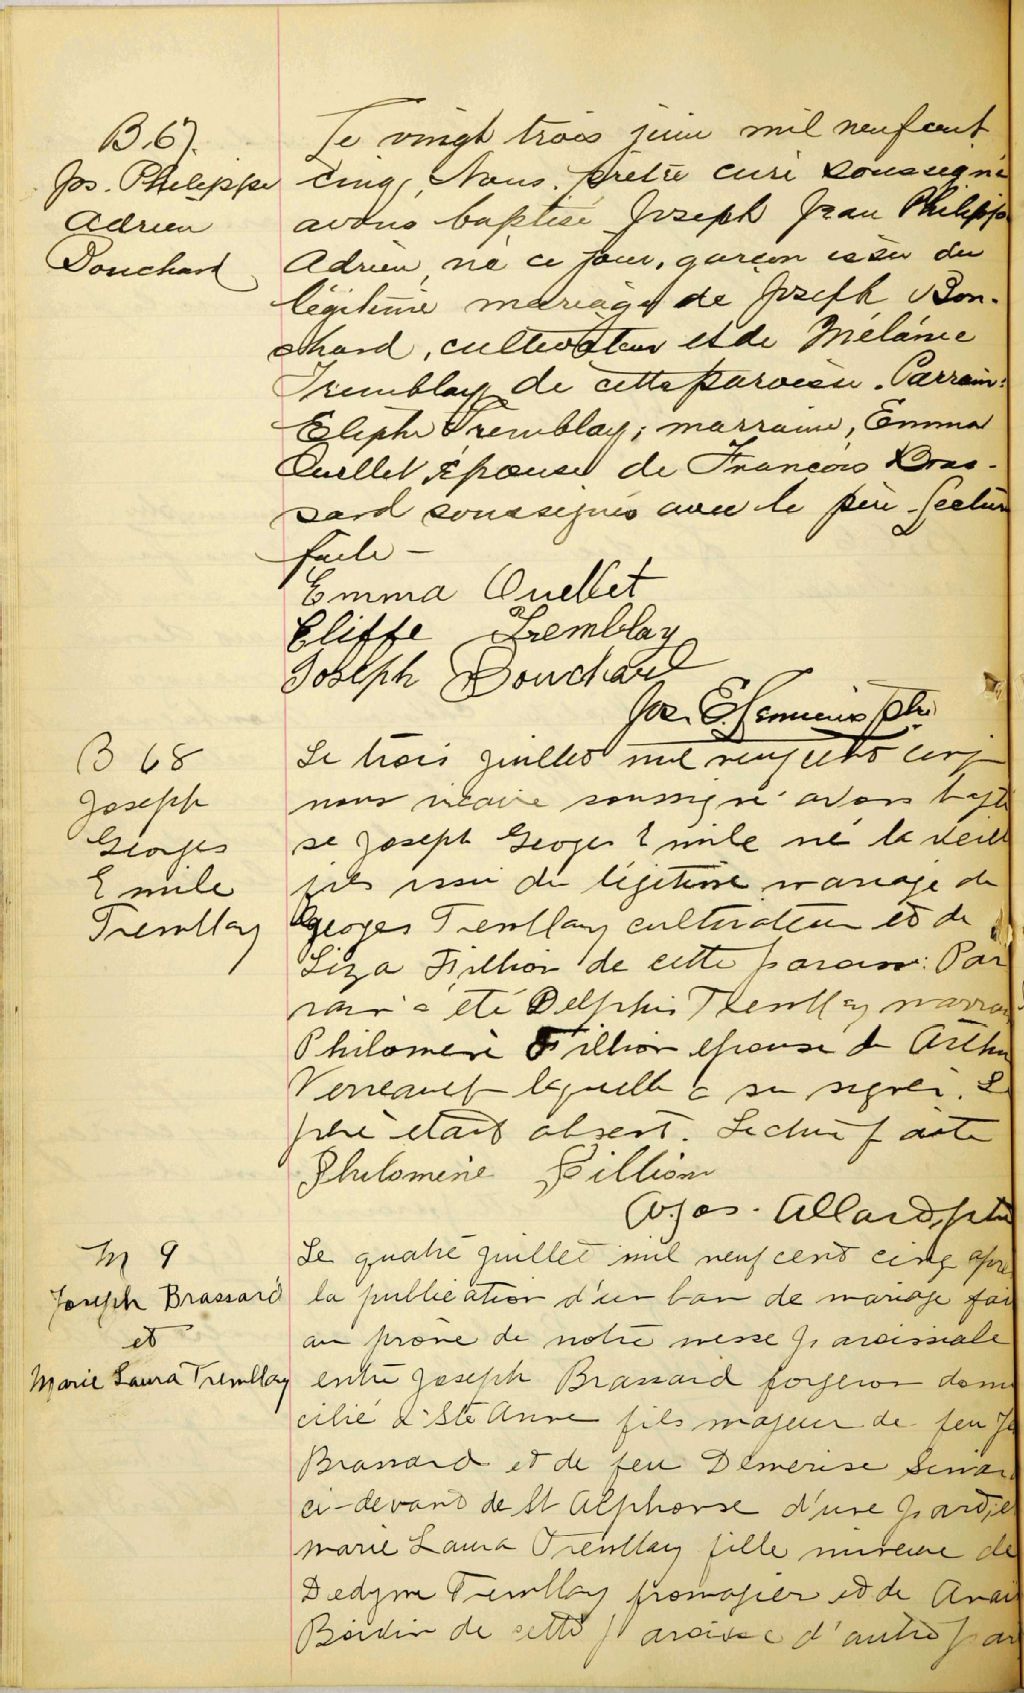 B. 67.
Jos. Philippe
Adrien
Bouchard
Le vingt trois juin mil neuf cent
cinq, Nous, prêtre curé soussigné
avons baptisé Joseph Jean Philippe
Adrien, né ce jour, garçon issu du
légitime mariage de Joseph Bou-
chard, cultivateur et de Mélanie
Tremblay de cette paroisse. Parrain:
Eliphe Tremblay; marraine, Emma
Ouellet épouse de François Bras-
sard soussignés avec le père. Lecture
faite —
Emma Ouellet
Eliffe Tremblay
Joseph Bouchard
Jos. E. Lemieux Ptre
B 68
Joseph
Georges
Emile
Tremblay
Le trois juillet mil neuf cent cinq
nous vicaire soussigné avons bapti
sé Joseph Georges Emile né la veille
fils issu du légitime mariage de
Georges Tremblay cultivateur et de
Liza Fillion de cette paroisse. Par
rain a été Delphis Tremblay marrai
Philomène Fillion épouse de Arthu
Verreault laquelle a su signer. Le
père était absent. Lecture faite
Philomène Fillion
Jos. Allard, ptre
M 9
Joseph Brassard
et
Marie Laura Tremblay
Le quatre juillet mil neuf cent cinq apre
la publication d'un ban de mariage fai
au prône de notre messe paroissiale
entre Joseph Brassard forgeron domi
cilié à Ste Anne fils majeur de feu Jo
Brassard et de feu Démerise Simar
ci-devant de St Alphonse d'une part, et
Marie Laura Tremblay fille mineure de
Dedyme Tremblay fromagier et de Anaï
Boivin de cette paroisse d'autre par